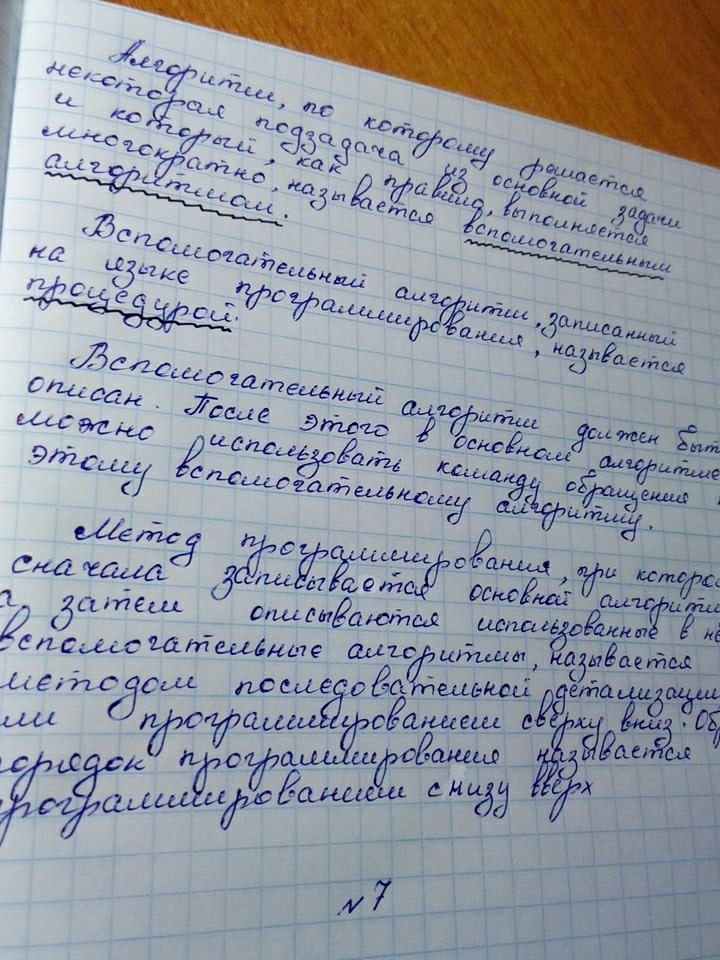 Алгоритм, по которому решается
некоторая подзадача из основной задачи
и который, как правило, выполняется
многократно, называется вспомогательным
алгоритмом.
Вспомогательный алгоритм, записанный
на языке программирования, называется
процедурой.
Вспомогательный алгоритм должен быт
описан. После этого в основном алгоритме
можно использовать команду обращения
этому вспомогательному алгоритму.
Метод программирования, при которо
сначала записывается основной алгоритм
а затем описываются использованные в нё
вспомогательные алгоритмы, называется
методом последовательной детализации
ли программированием сверху вниз. Об
порядок программирования называется
рограммированием снизу вверх
№7